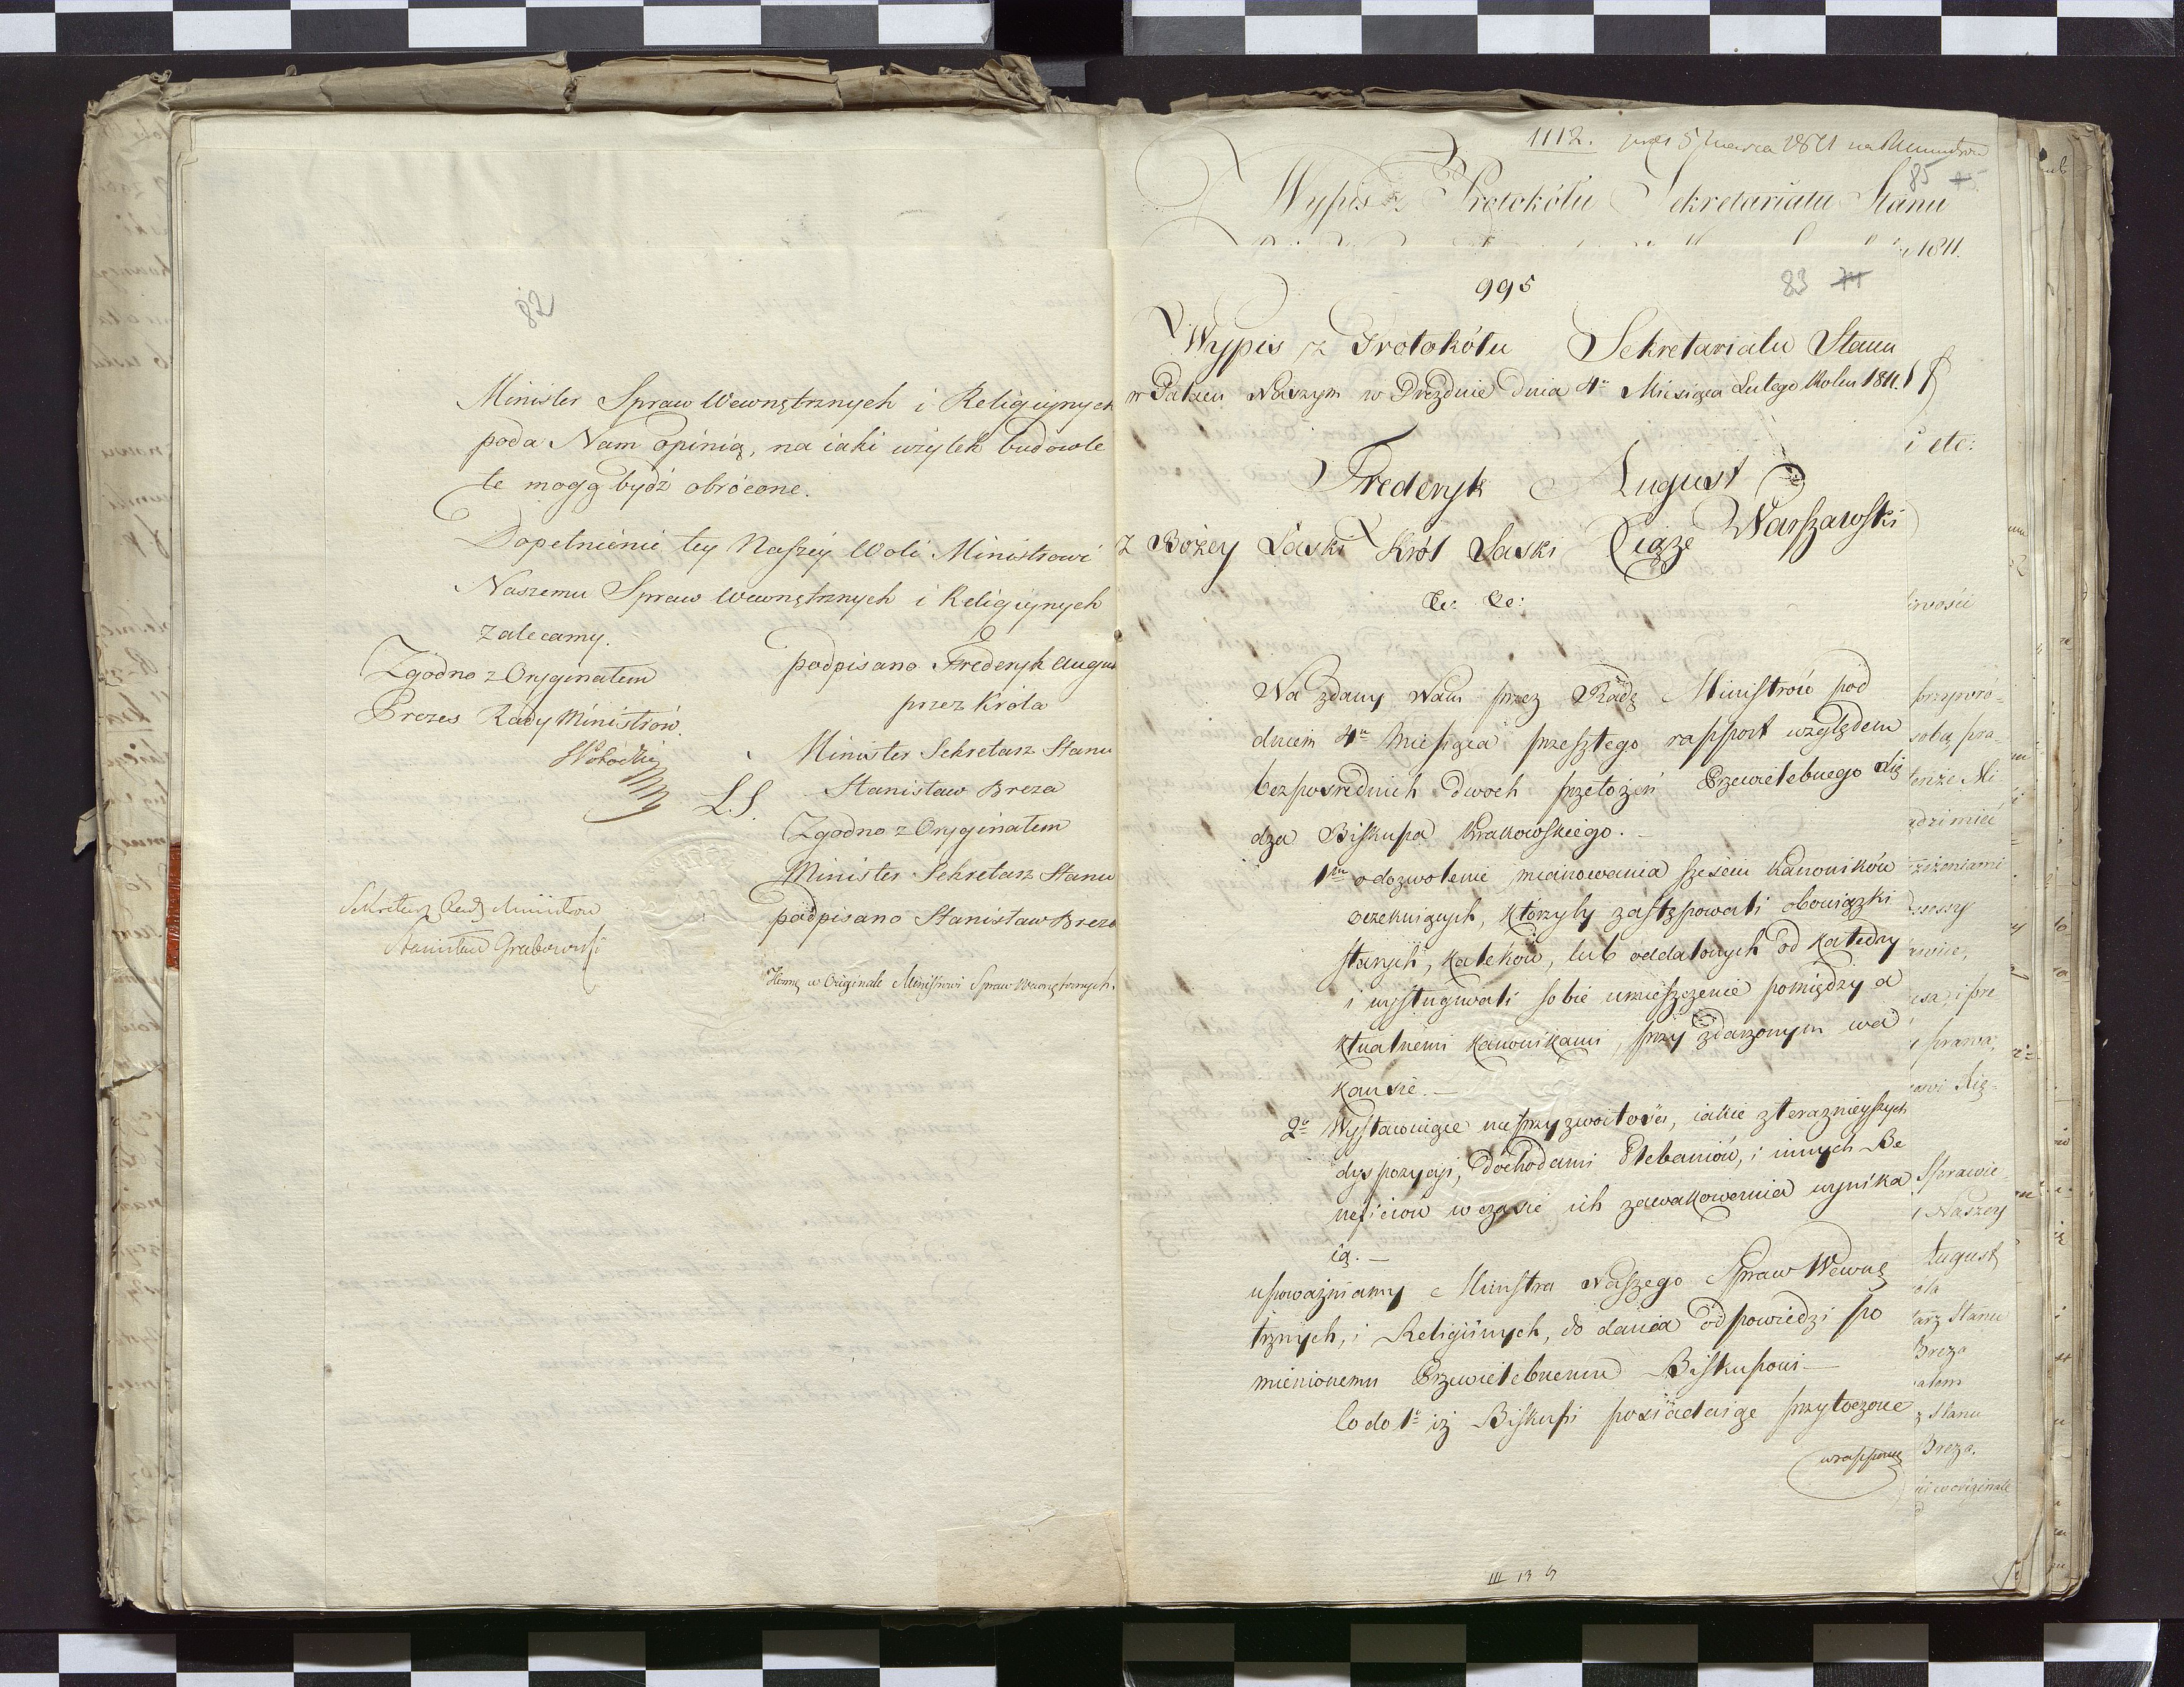 82
Minister Spraw Wewnętrznych i Religijnych
poda Nam opinią, na iaki użytek budowle
te mogą bydź obrócone.
Dopełnienie tey Naszey Woli Ministrowi
Naszemu Spraw Wewnętrznych i Religijnych
zalecamy.
Zgodno z Oryginałem
Prezes Rady Ministrów.
podpisano Frederyk Augus
przez Króla
Minister Sekretarz Stanu
L.S. Stanisław Breza
Zgodno z Oryginałem
Minister Sekretarz Stanu
podpisano Stanisław Breza
Sekretarz Rady Ministrów
Stanisław Grabowski
w Originale Ministrowi Spraw Wewnętrznych.
1112. 5 Marca 1811
85
Wypis z Protokółu Sekretariatu Stanu
1811.
995
83
Wypis z Protokółu Sekretariatu Stanu
w Pałacu Naszym w Dreźnie dnia 4º Miesiąca Lutego Roku 1811.
i etc:
Frederyk August
z Bożey Łaski Król Saski Xiąże Warszawski
&c: &c:
Na zdany Nam przez Radę Ministrów pod
dniem 4º Miesiąca przeszłego rapport względem
bezpośrednich dwoch przełożeń Przewielebnego Xię
dza Biskupa Krakowskiego.
1mo odozwolenie mianowania sześciu kanoników
oczekuiących, którzyby zastępowali obowiązki
starych, kaleków, lub oddalonych od katedry
i wysługiwali sobie umieszczenie pomiędzy a
ktualnemi kanonikami, przy zdarzonym wa
kansie. —
2º Wystawuiące nieprzyzwoitości, iakie z teraznieyszych
dyspozycji, dochodami Plebaniów, i innych Be
neficiów w czasie ich zawakowania wynika
ią. —
upoważniamy Ministra Naszego Spraw Wewnę
trznych, i Religiinych, do dania odpowiedzi po
mienionemu Przewielebnemu Biskupowi —
Co do 1º iż Biskupi posiadaiąc przytoczone
III 13 5
przywró-
sobą pra-
Sprawie-
i Naszey
August
Stanu
Breza
Stanu
Breza.
w originale